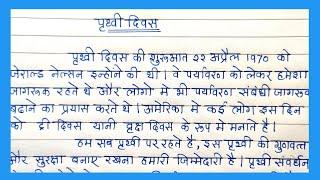 पृथ्वी दिवस
पृथ्वी दिवस की शुरूआत २२ अप्रैल १970 को
जेराल्ड नेल्सन इन्होने की थी। वे पर्यावरण को लेकर हमेशा
जागरूक रहते थे और लोगो मे भी पर्यावरण संबंधी जागरूक
बढाने का प्रयास करते थे। अमेरिका मे कई लोग इस दिन
को ट्री दिवस यानी वृक्ष दिवस के रूप मे मनाते है।
हम सब पृथ्वी पर रहते है, इस पृथ्वी की गुणवत्ता
और सुरक्षा बनाए रखना हमारी जिम्मेदारी है। पृथ्वी संवर्धन